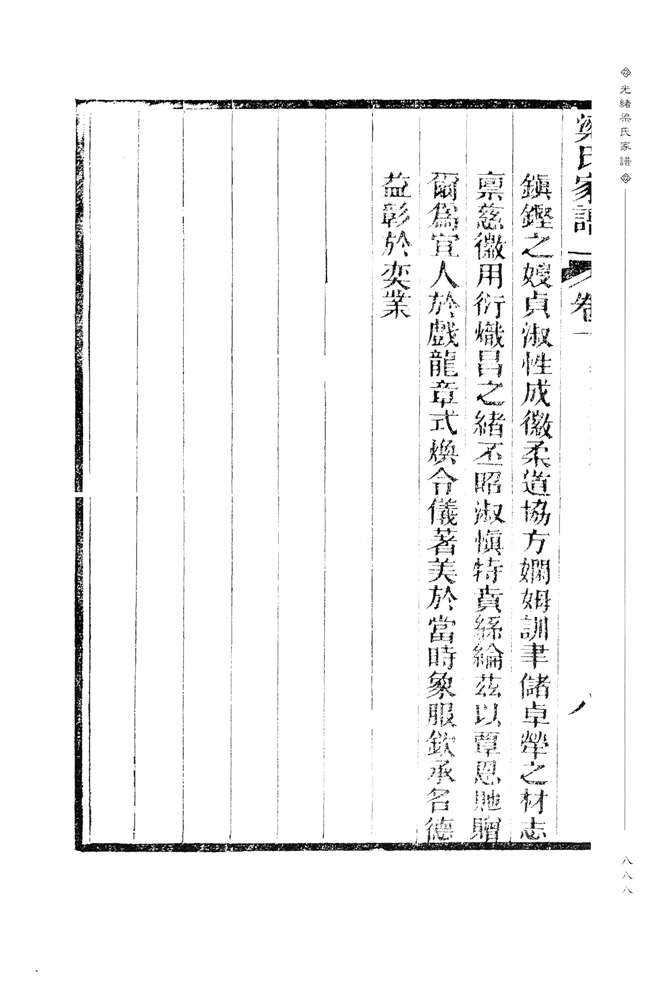 光緒梁氏家譜
梁氏家譜 卷一
八
鎮鏗之嫂貞淑性成徽柔道協方嫻姆訓聿儲卓犖之材志
禀慈徽用衍熾昌之緒丕昭淑慎特賁絲綸茲以覃恩貤贈
爾爲宜人於戲龍章式煥令儀著美於當時象服欽承名德
益彰於奕業
八八八